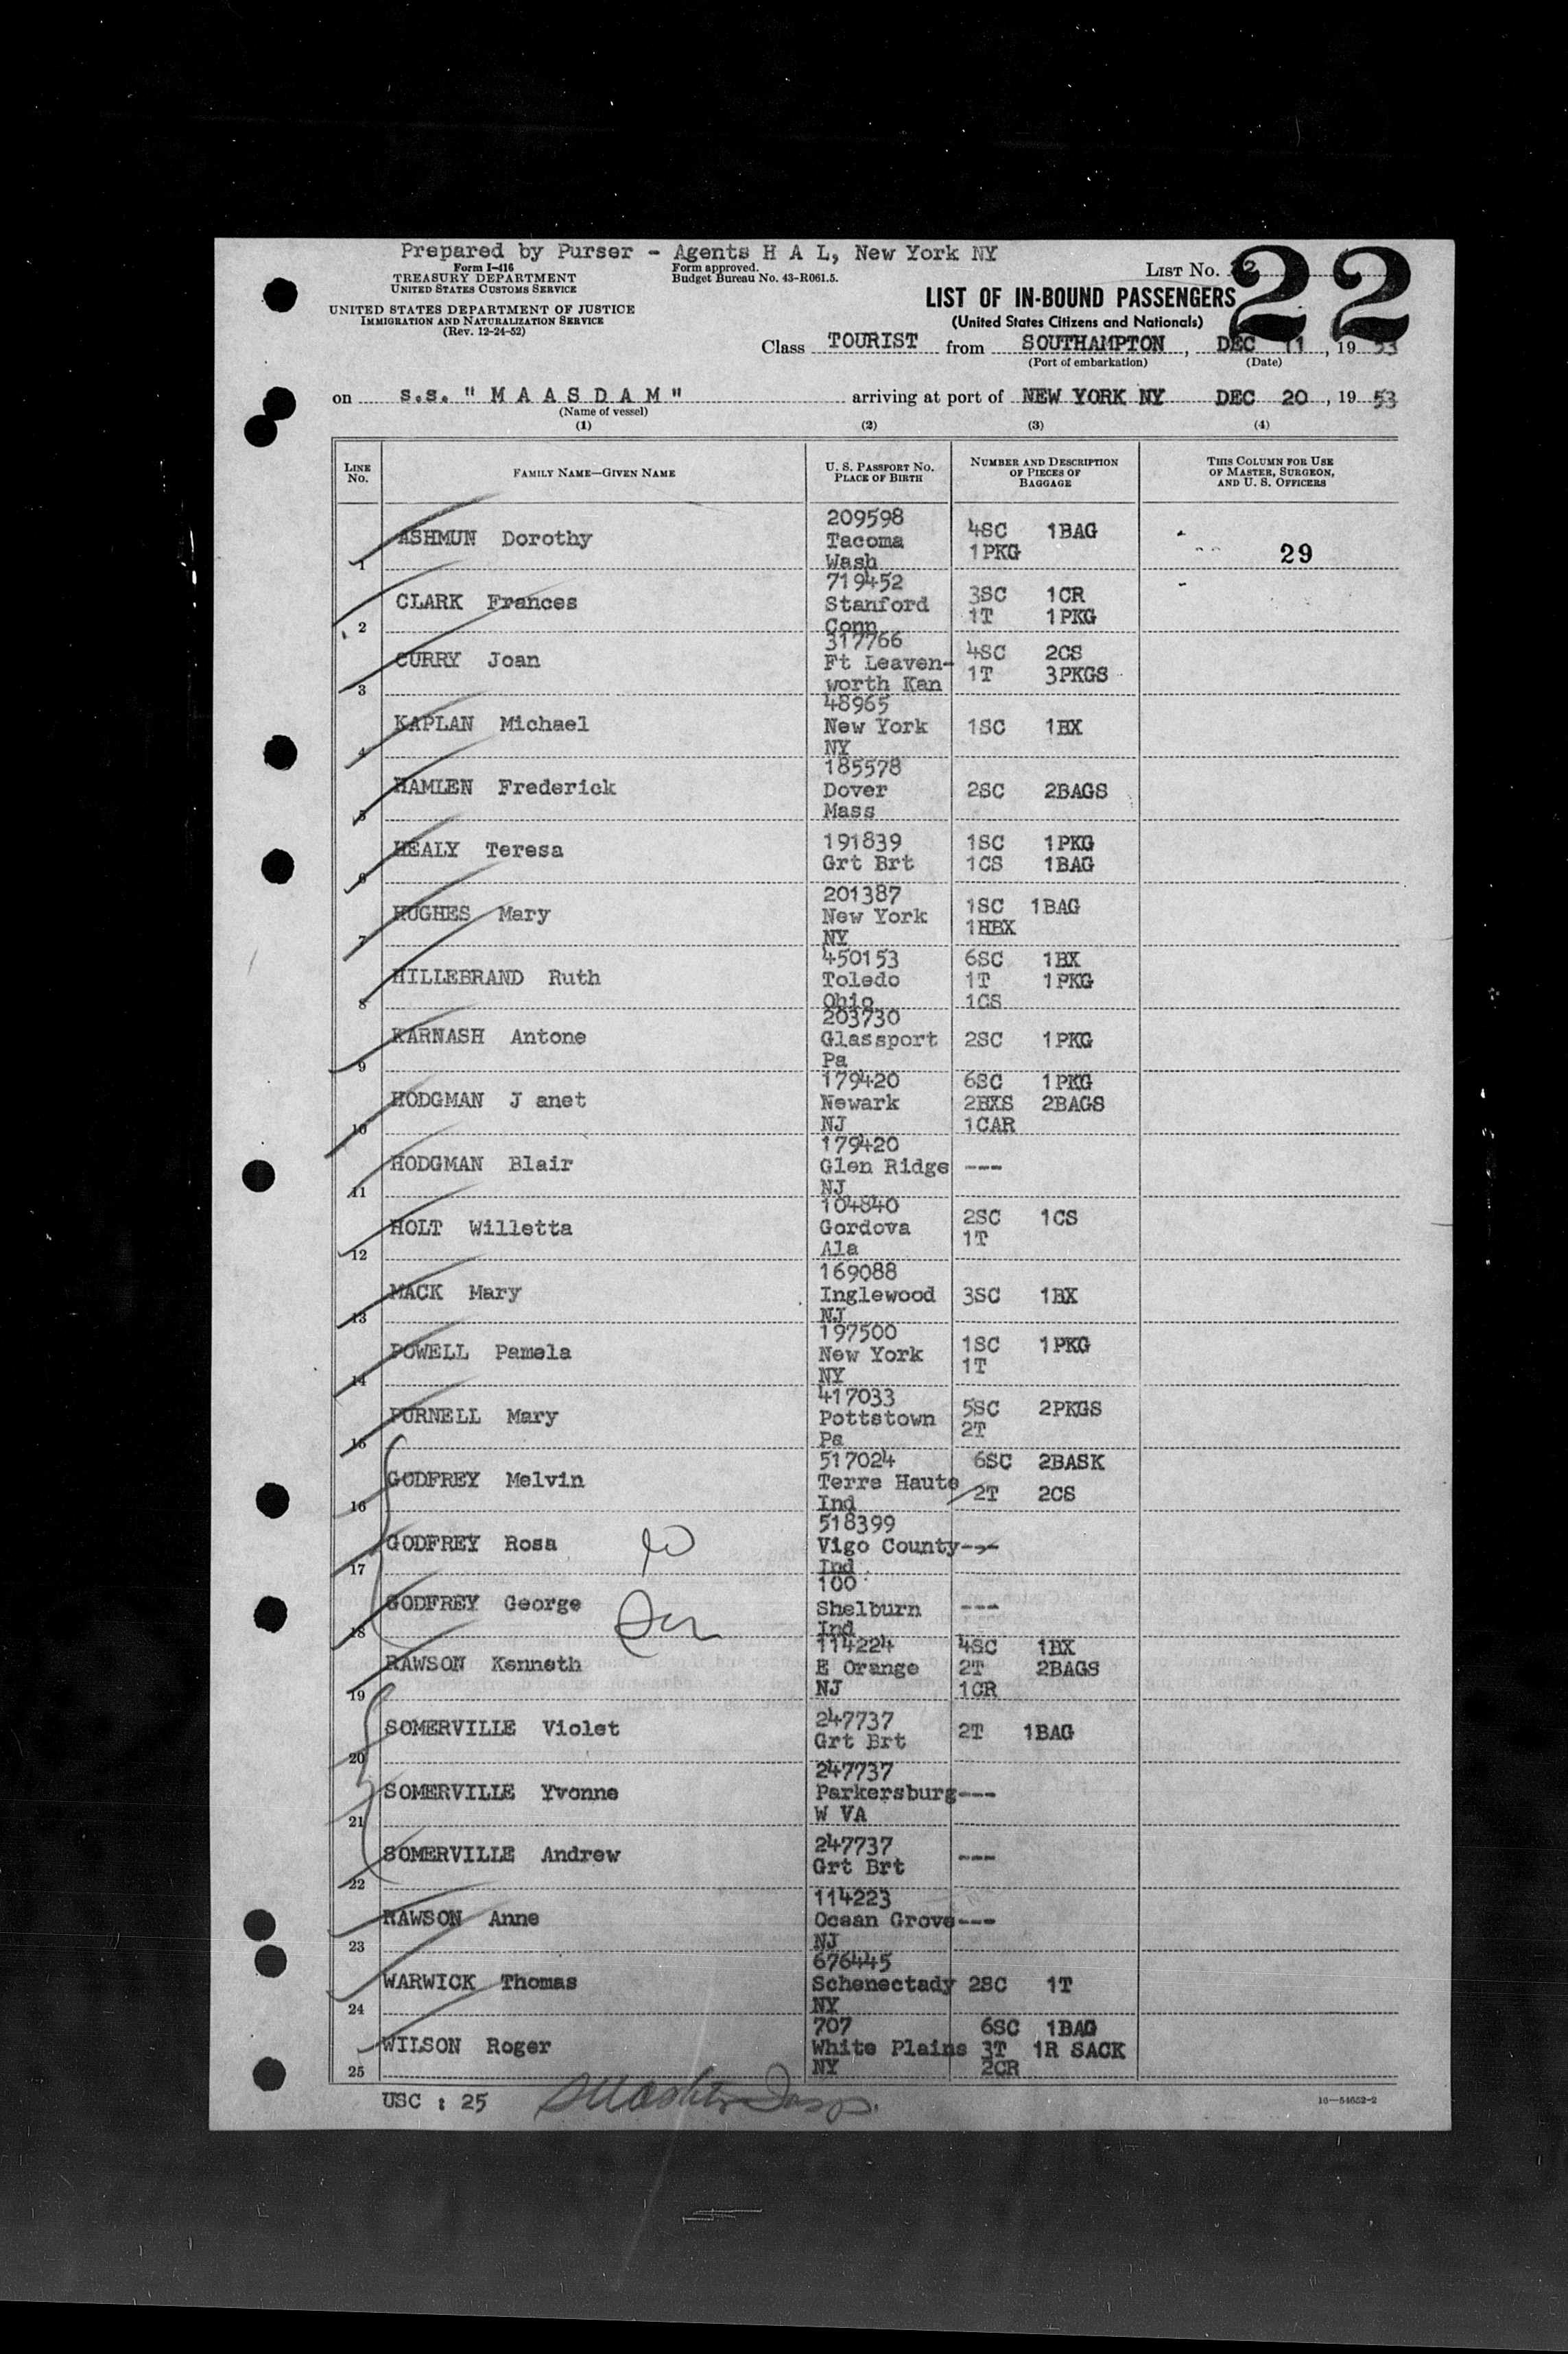 Prepared by Purser - Agents H A L, New York NY
Form I-416
TREASURY DEPARTMENT
UNITED STATES CUSTOMS SERVICE
Form approved.
Budget Bureau No. 43-R061.5.
LIST NO.
22
UNITED STATES DEPARTMENT OF JUSTICE
IMMIGRATION AND NATURALIZATION SERVICE
(Rev. 12-24-52)
LIST OF IN-BOUND PASSENGERS
(United States Citizens and Nationals)
Class TOURIST from SOUTHAMPTON, DEC 11, 19 53
(Port of embarkation) (Date)
on s.s. " M A A S D A M " arriving at port of NEW YORK NY DEC 20, 19 53
(Name of vessel)
(1) (2) (3) (4)
LINE NO. FAMILY NAME—GIVEN NAME U. S. PASSPORT NO. PLACE OF BIRTH NUMBER AND DESCRIPTION OF PIECES OF BAGGAGE THIS COLUMN FOR USE OF MASTER, SURGEON, AND U. S. OFFICERS
1 ASHMUN Dorothy 209598 Tacoma Wash 4SC 1BAG 1PKG 29
2 CLARK Frances 719452 Stanford Conn 3SC 1CR 1T 1PKG
3 CURRY Joan 317766 Ft Leaven-worth Kan 4SC 2CS 1T 3PKGS
4 KAPLAN Michael 48965 New York NY 1SC 1BX
5 HAMLEN Frederick 185578 Dover Mass 2SC 2BAGS
6 HEALY Teresa 191839 Grt Brt 1SC 1PKG 1CS 1BAG
7 HUGHES Mary 201387 New York NY 1SC 1BAG 1HBX
8 HILLEBRAND Ruth 450153 Toledo Ohio 6SC 1BX 1T 1PKG 1CS
9 KARNASH Antone 203730 Glassport Pa 2SC 1PKG
10 HODGMAN J anet 179420 Newark NJ 6SC 1PKG 2BXS 2BAGS 1CAR
11 HODGMAN Blair 179420 Glen Ridge NJ ---
12 HOLT Willetta 104840 Gordova Ala 2SC 1CS 1T
13 MACK Mary 169088 Inglewood NJ 3SC 1BX
14 POWELL Pamela 197500 New York NY 1SC 1PKG 1T
15 PURNELL Mary 417033 Pottstown Pa 5SC 2PKGS 2T
16 GODFREY Melvin 517024 Terre Haute Ind 6SC 2BASK 2T 2CS
17 GODFREY Rosa 518399 Vigo County Ind ---
18 GODFREY George 100 Shelburn Ind ---
19 RAWSON Kenneth 114224 E Orange NJ 4SC 1BX 2T 2BAGS 1CR
20 SOMERVILLE Violet 247737 Grt Brt 2T 1BAG
21 SOMERVILLE Yvonne 247737 Parkersburg W VA ---
22 SOMERVILLE Andrew 247737 Grt Brt ---
23 RAWSON Anne 114223 Ocean Grove NJ ---
24 WARWICK Thomas 676445 Schenectady NY 2SC 1T
25 WILSON Roger 707 White Plains NY 6SC 1BAG 3T 1R SACK 2CR
USC : 25
16—54652-2